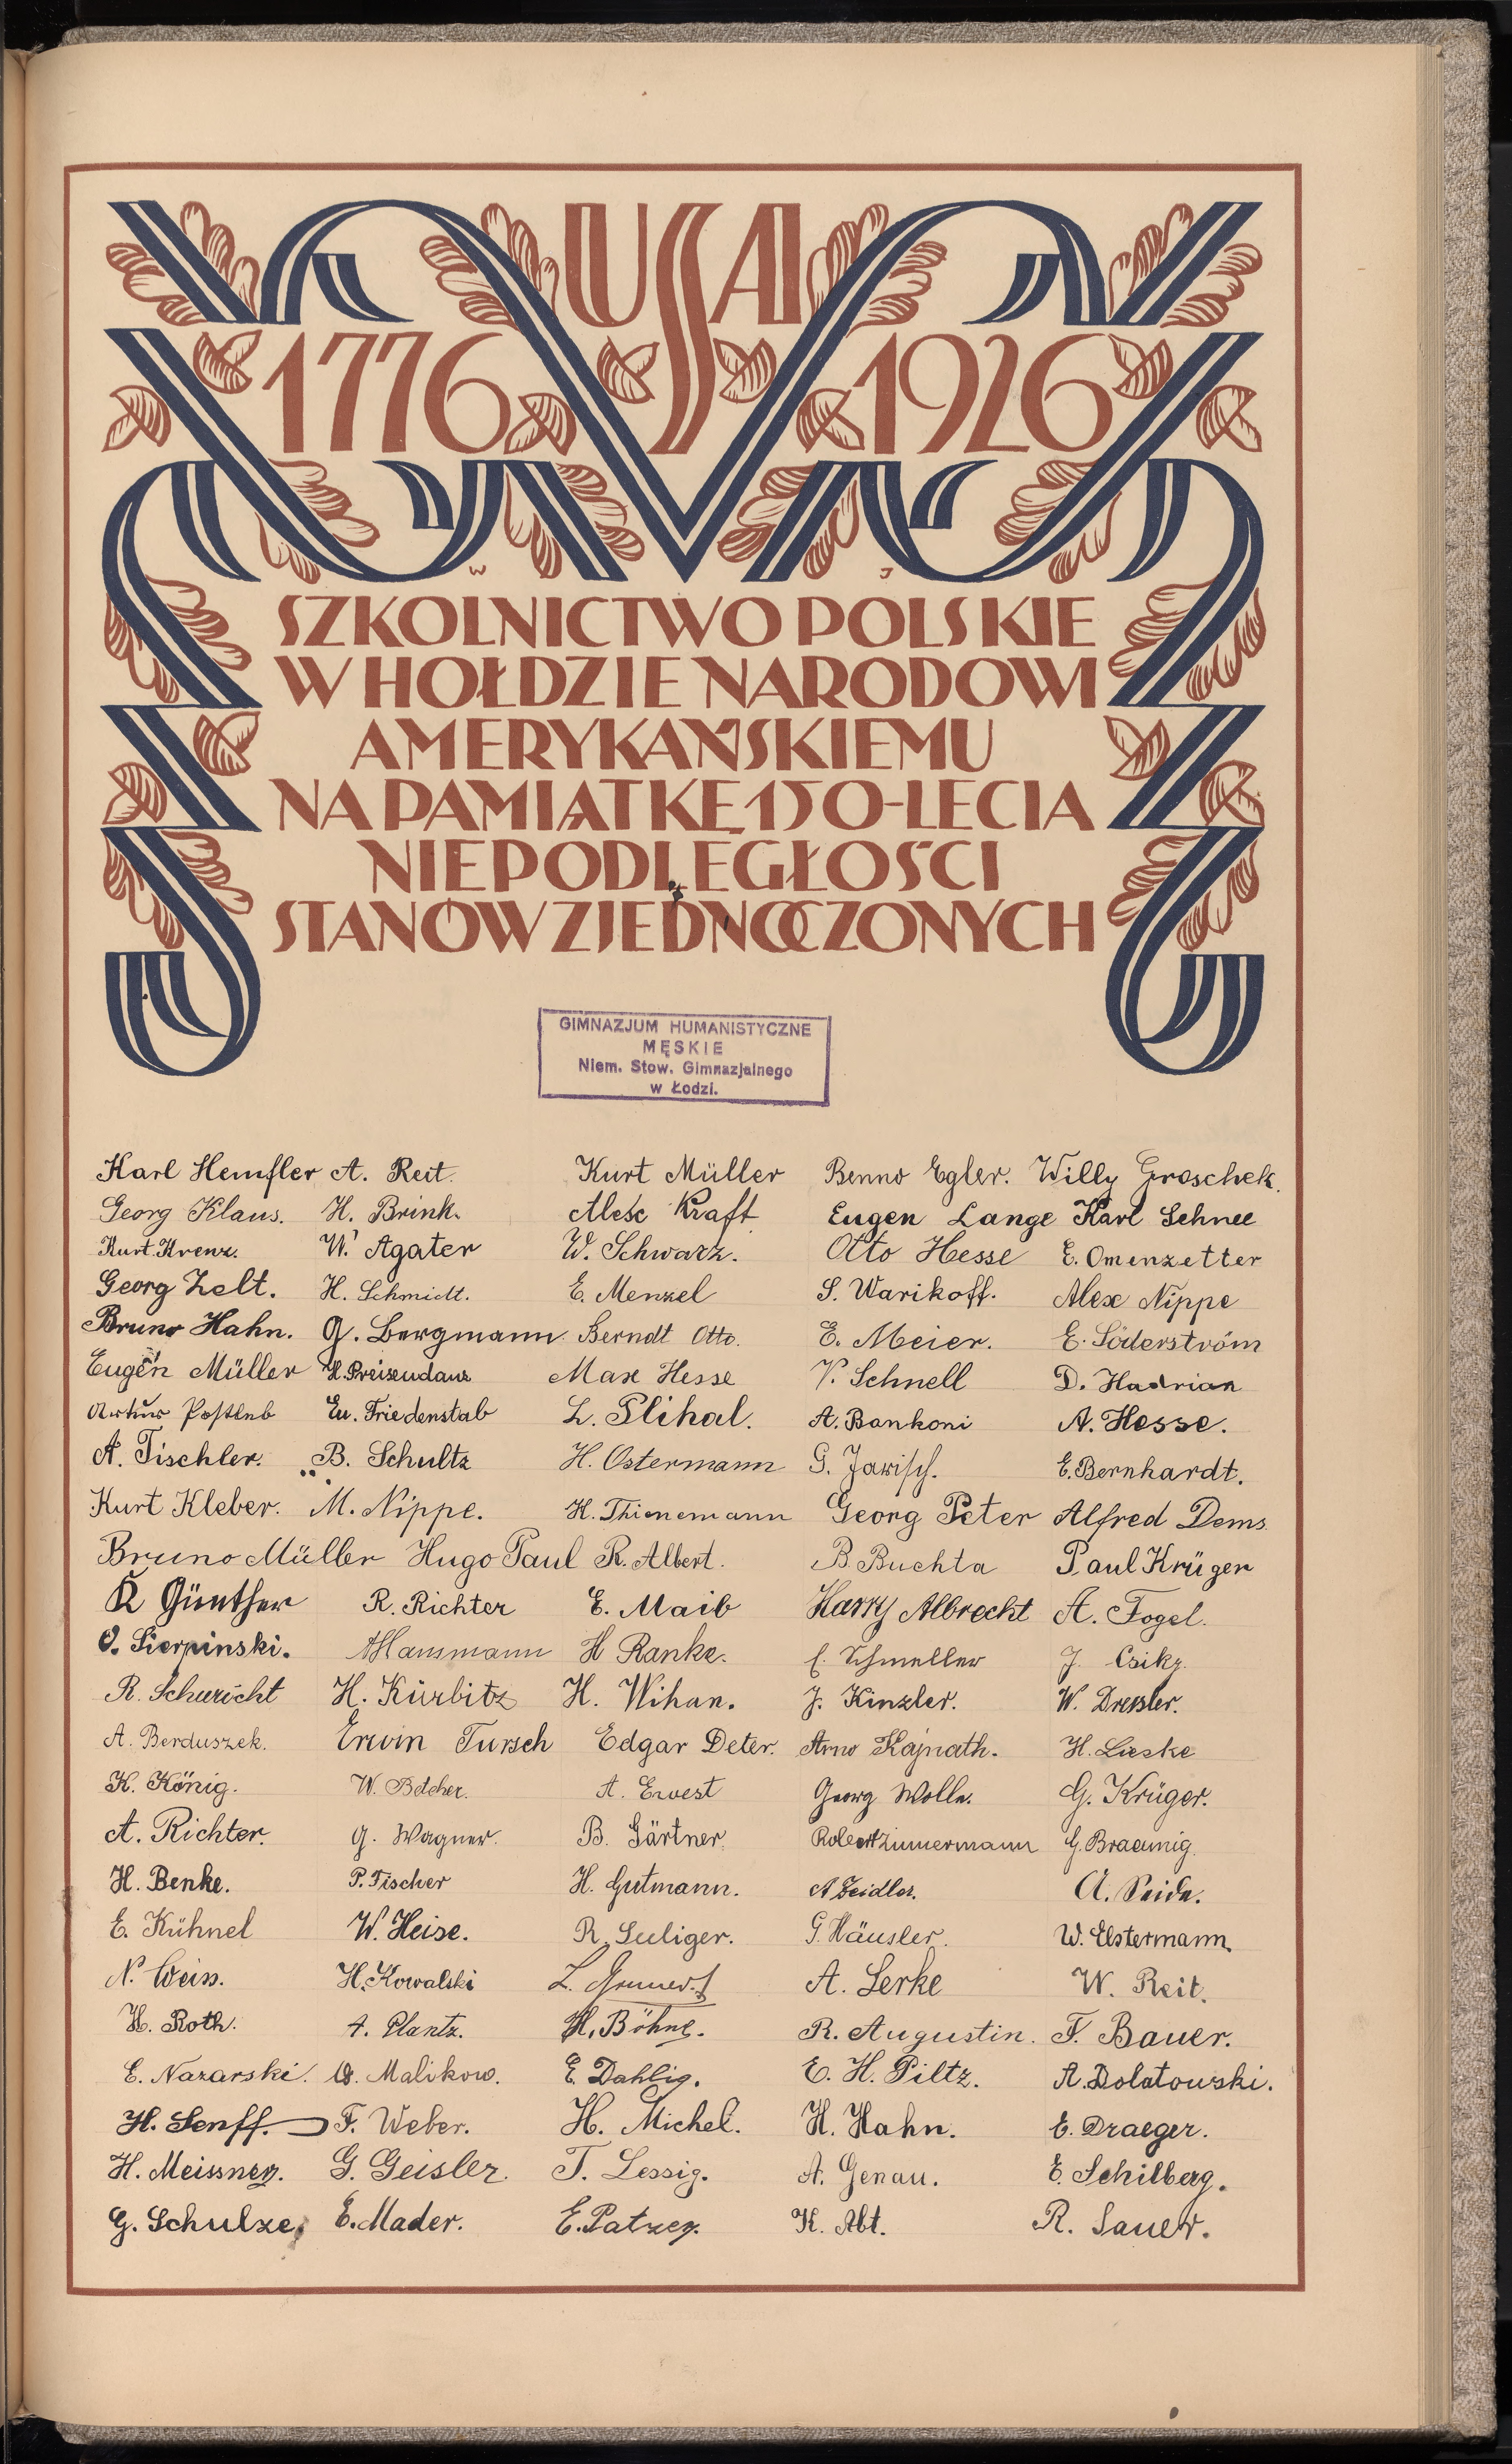 USA
1776 1926
W J
SZKOLNICTWO POLSKIE
W HOŁDZIE NARODOWI
AMERYKAŃSKIEMU
NA PAMIĄTKĘ 150-LECIA
NIEPODLEGŁOŚCI
STANÓW ZJEDNOCZONYCH
GIMNAZJUM HUMANISTYCZNE
MĘSKIE
Niem. Stow. Gimnazjalnego
w Łodzi.
Karl Hemfler A. Reit. Kurt Müller Benno Egler. Willy Groschek.
Georg Klaus. H. Brink. Alex Kraft Eugen Lange Karl Schnee
Kurt Krenz. W. Agater W. Schwarz. Otto Hesse E. Omenzetter
Georg Zelt. H. Schmidt. E. Menzel S. Warikoff. Alex Nippe
Bruno Hahn. G. Bergmann Berndt Otto. E. Meier. E. Söderström
Eugen Müller H. Preisendanz Max Hesse V. Schnell D. Hadrian
Artur Postleb Eu. Friedenstab L. Plihal. A. Bankoni A. Hesse.
A. Tischler. B. Schultz H. Ostermann G. Jarisch. E. Bernhardt.
Kurt Kleber. M. Nippe. H. Thienemann Georg Peter Alfred Dems
Bruno Müller Hugo Paul R. Albert. B Buchta Paul Krüger
K Günther R. Richter E. Maib Harry Albrecht A. Fogel.
O. Sierpinski. A Hausmann H Ranke. E. Schmeller J. Csikz.
R. Schuricht H. Kürbitz H. Wihan. J. Kinzler. W. Dressler.
A. Berduszek. Erwin Tursch Edgar Deter. Arno Kajnath. H. Lieske
K. König. W. Bölcher. A. Ernest Georg Wolle. G. Krüger.
A. Richter. G. Wagner. B. Gärtner. Robert Zimmermann G. Braeunig.
H. Benke. P. Fischer H. Gutmann. A Zeidler. A. Seide.
E. Kühnel W. Heise. R. Suliger. G. Häusler. W. Elstermann.
N. Weiss. H. Kowalski L. A. Lerke W. Reit.
H. Roth. A. Plantz. H. Böhne. R. Augustin. F. Bauer.
E. Nazarski. Malikow. E. Dahlig. E. H. Piltz. A. Dolatowski.
H. Senff. F. Weber. H. Michel. H. Hahn. E. Draeger.
H. Meissner. G. Geisler. T. Lessig. A. Genau. E. Schilberg.
G. Schulze. E. Mader. E. Patzer. K. Abt. R. Sauer.